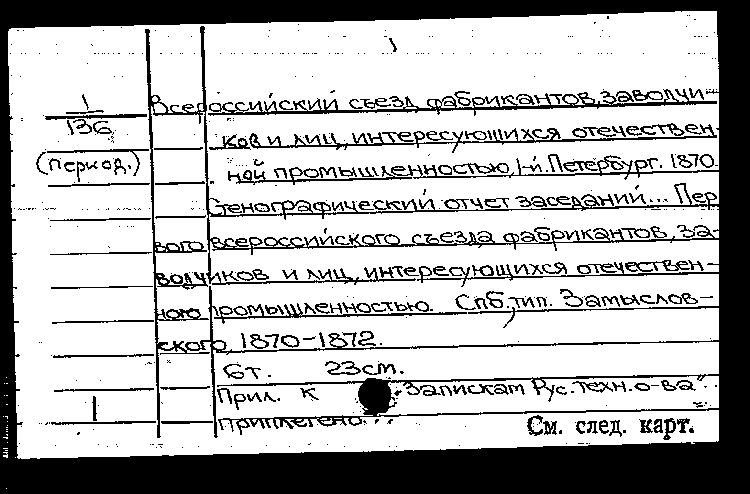 1
1
136
(период.)
Всероссийский съезд фабрикантов, заводчи-
ков и лиц, интересующихся отечествен-
ной промышленностью, I-й. Петербург. 1870.
Стенографический отчет заседаний... Пер
вого всероссийского съезда фабрикантов, за-
водчиков и лиц, интересующихся отечествен-
ною промышленностью. Спб, тип. Замыслов-
ского, 1870-1872.
6т. 23см.
Прил. к "Запискам Рус. техн. о-ва".
Приплетено...
См. след. карт.